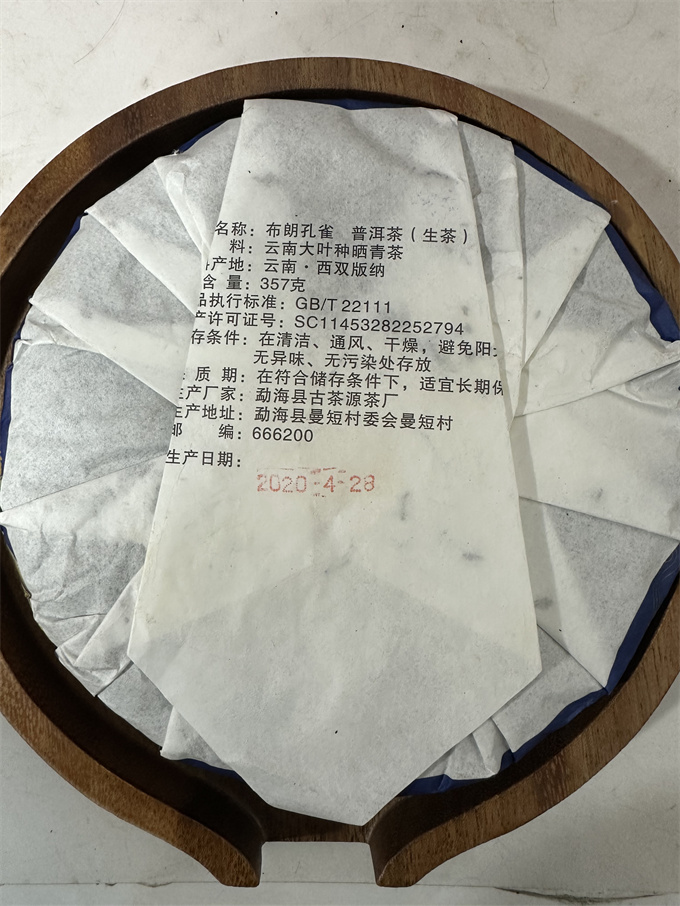 名称：布朗孔雀 普洱茶（生茶）
料：云南大叶种晒青茶
产地：云南·西双版纳
含 量：357克
品执行标准：GB/T 22111
产许可证号：SC11453282252794
存条件：在清洁、通风、干燥，避免阳
无异味、无污染处存放
质 期：在符合储存条件下，适宜长期保
生产厂家：勐海县古茶源茶厂
生产地址：勐海县曼短村委会曼短村
邮 编：666200
生产日期：
2020-4-28